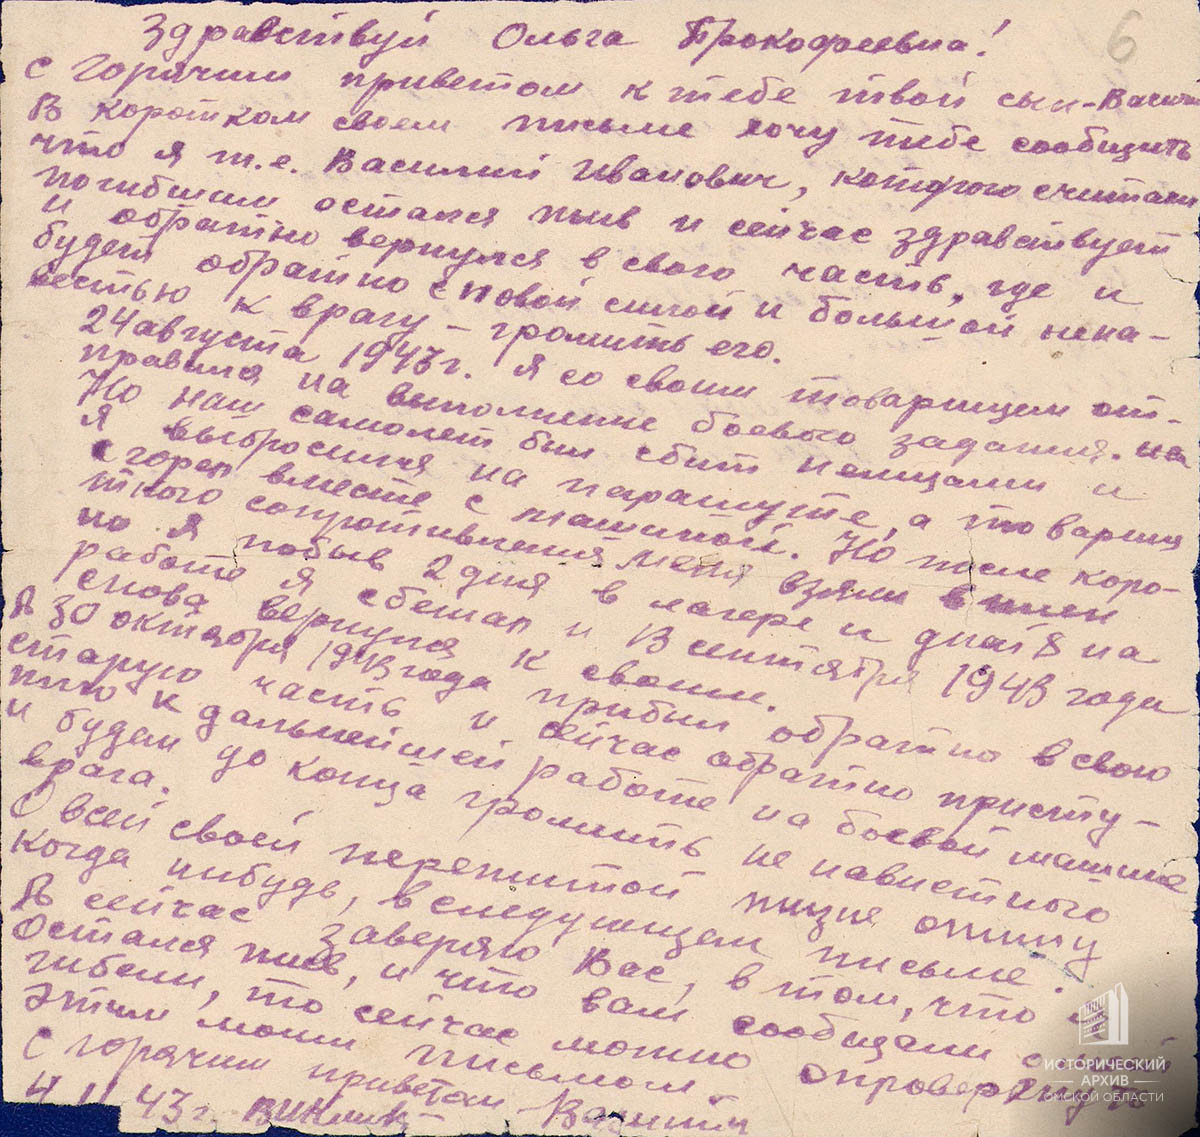 6
Здравствуй Ольга Прокофеевна!
С горячим приветом к тебе твой сын-Васили
В коротком своем письме хочу тебе сообщить
что я т.е. Василий Иванович, которого считали
погибшим остался жив и сейчас здравствует
и обратно вернулся в свою часть, где и
будет обратно с новой силой и большой нена-
вестью к врагу – громить его.
24 августа 1943г. я со своим товарищем от-
правился на выполнение боевого задания. на
Но наш самолет был сбит немцами и
я выбросился на парашуте, а товарищ
сгорел вместе с машиной. Но после коро-
ткого сопротивления меня взяли в плен
но я побыв 2 дня в лагере и дней 8 на
работе я сбежал и 13 сентября 1943 года
снова вернулся к своим.
А 30 октября 1943 года прибыл обратно в свою
старую часть и сейчас обратно присту-
пию к дальнейшей работе на боевой машине
и будем до конца громить не навистного
врага.
О всей своей пережитой жизне опишу
когда нибудь, в следующем письме.
А сейчас заверяю Вас, в том, что я
Остался жив, и что вам сообщали о моей
гибели, то сейчас можно опровергнуть
этим моим письмом.
С горячим приветом Василий
4.11.43г.
ИСТОРИЧЕСКИЙ
АРХИВ
ОМСКОЙ ОБЛАСТИ